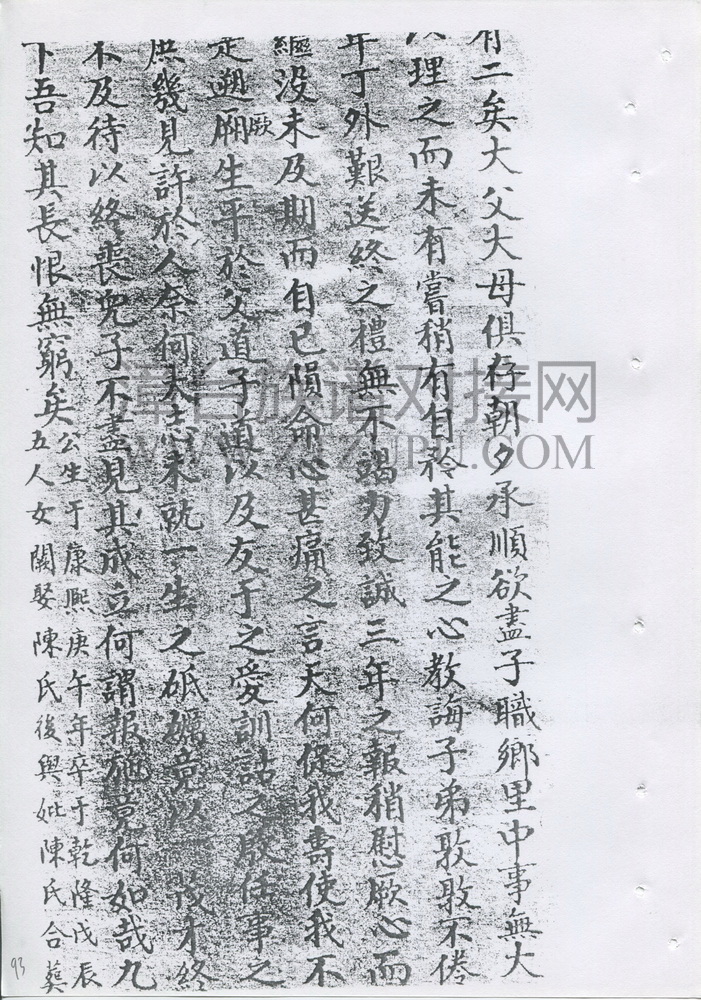 有二矣大父大母俱存朝夕承順欲盡子職鄉里中事無大
理之而未有嘗稍有自矜其能之心教誨子弟孜孜不倦
年丁外艱送終之禮無不竭力致誠三年之報稍慰厥心而
繼没未及期而自已隕命心甚痛之言天何促我壽使我不
遡厥生平於父道子道以及友于之愛訓詁之啟任事之
庶幾見許於人奈何大志未就一生之砥礪竟以一後才終
不及待以終喪兒子不盡見其成立何謂報施竟何如哉九
下吾知其長恨無窮矣公生于康熙庚午年卒于乾隆戊辰
五人女闗娶陳氏後與妣陳氏合葬
厥
潭台族谱对接网
WWW.ZTZUPU.COM
93